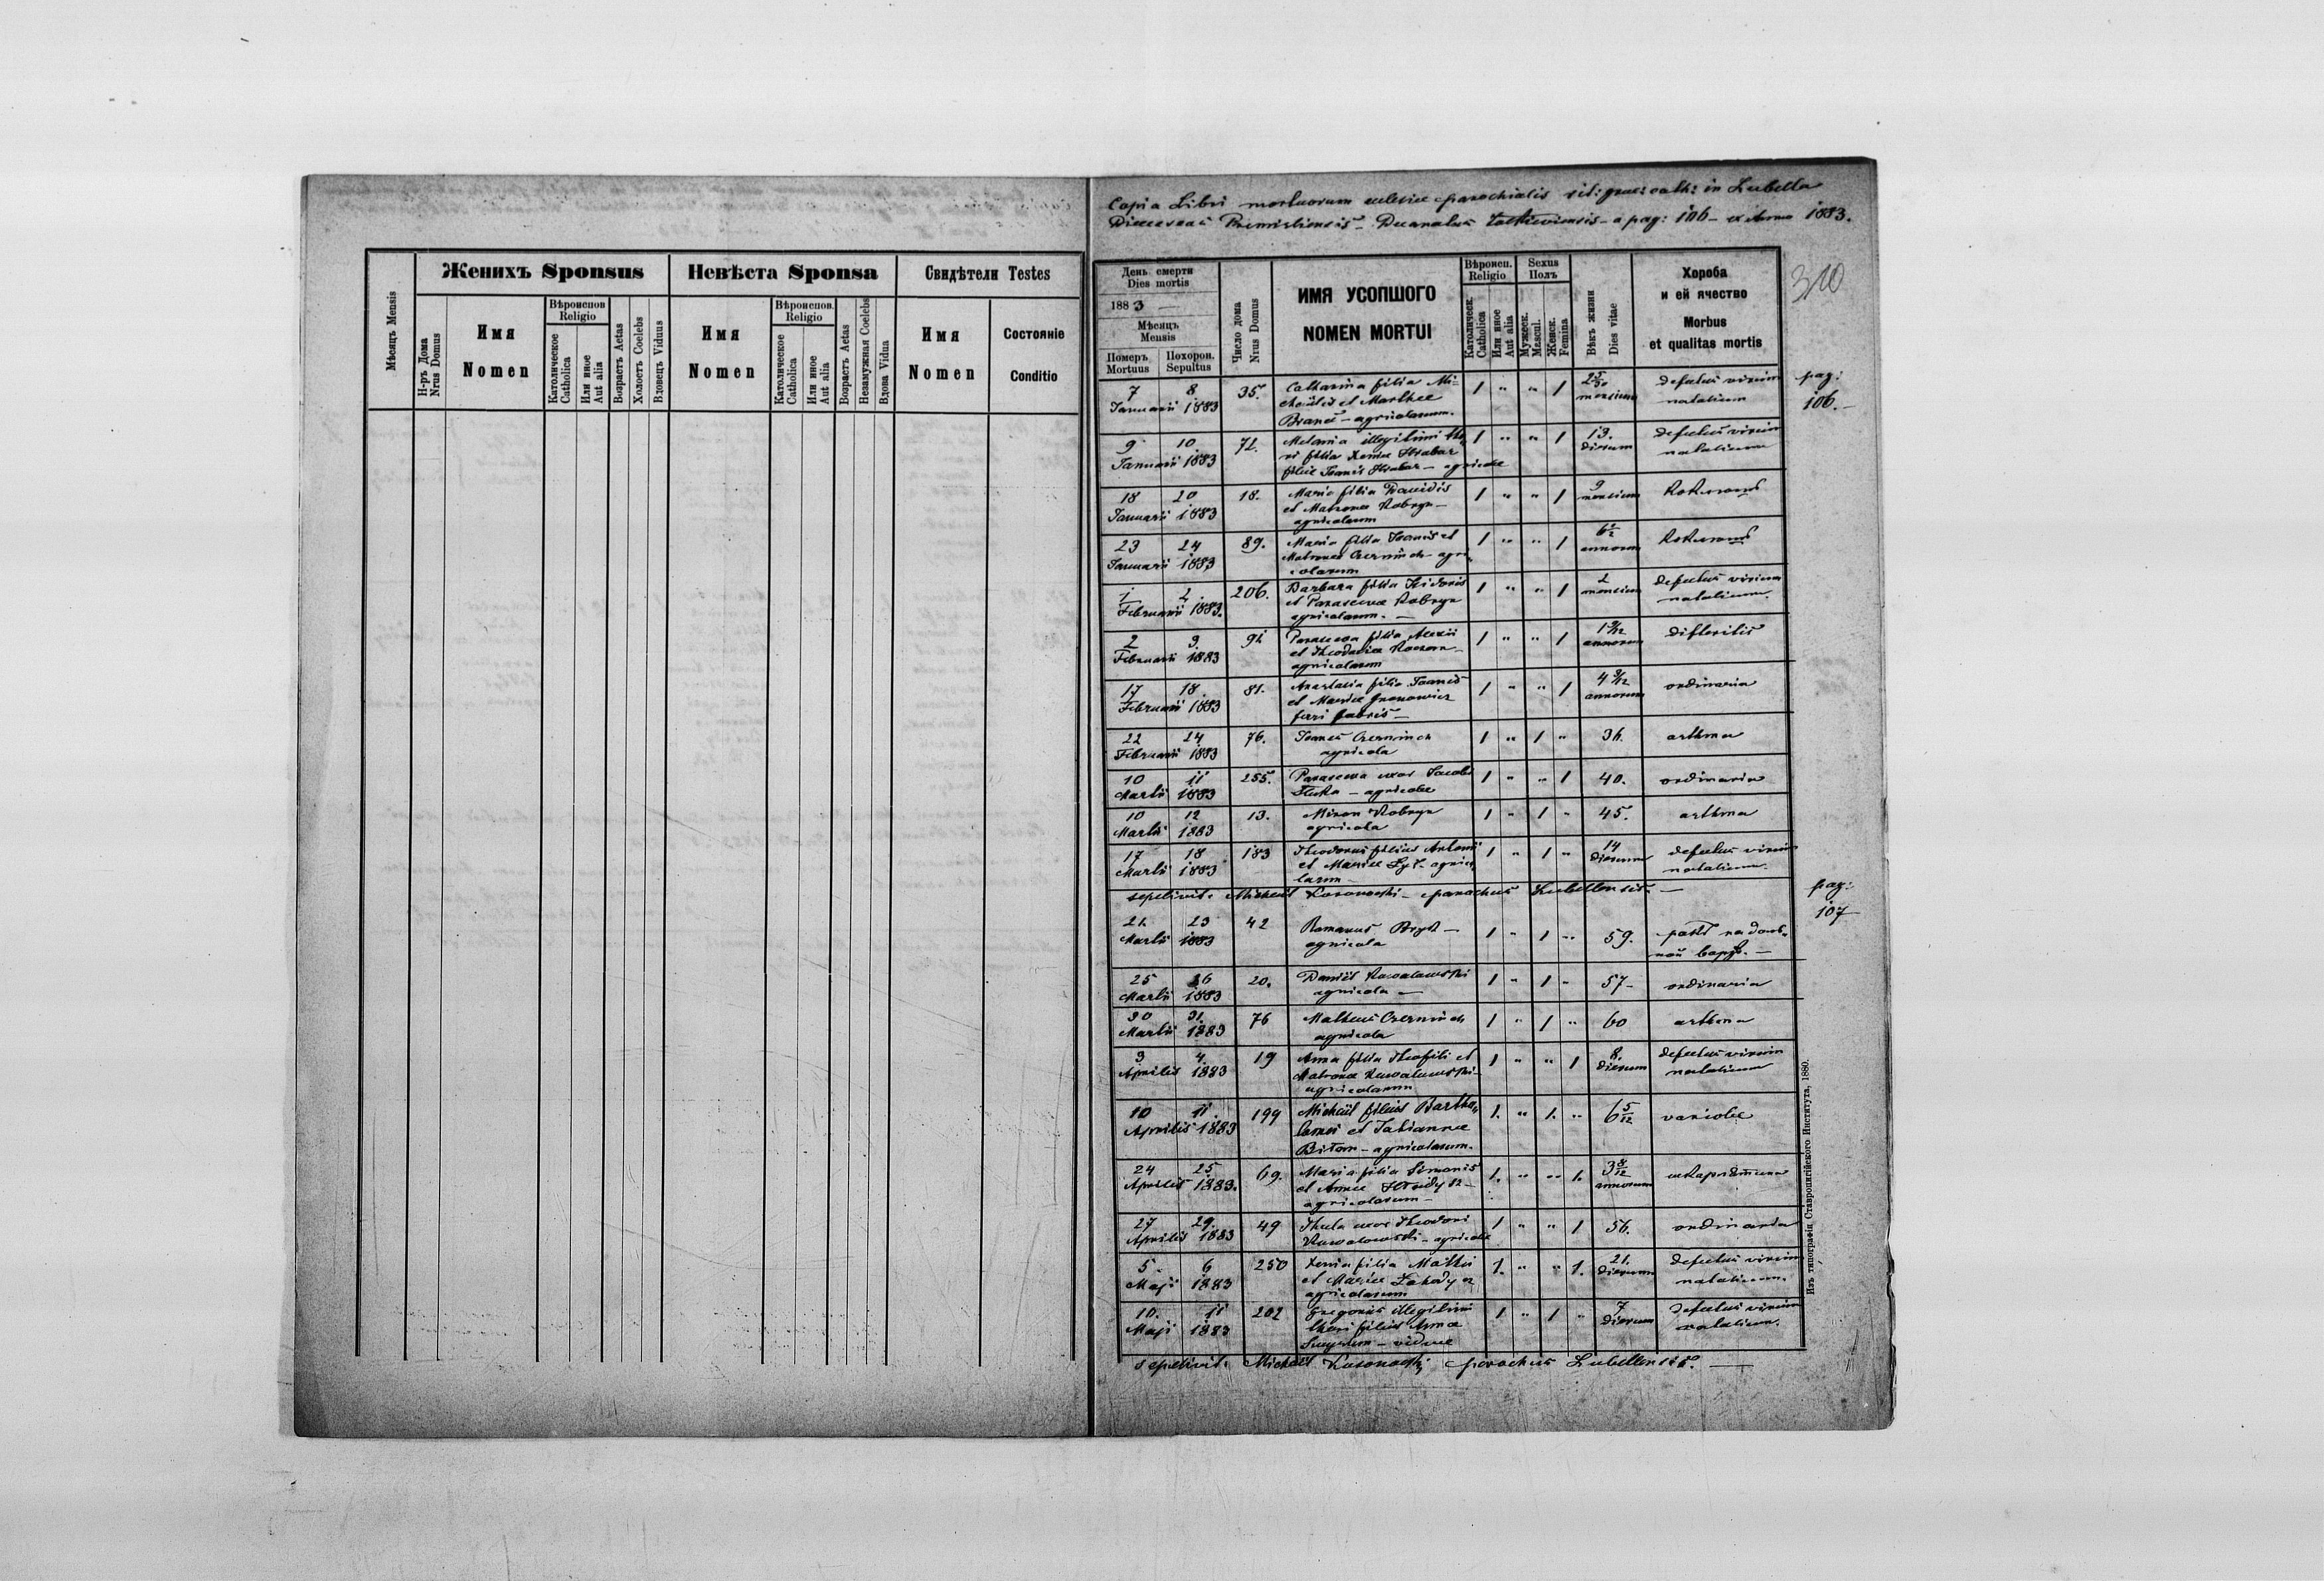 Женихъ Sponsus
Невѣста Sponsa
Свидѣтели Testes
Мѣсяцъ Mensis
Н-ръ Дома
Nrus Domus
Имя
Nomen
Вѣроиспов
Religio
Католическое
Catholica
Или иное
Aut alia
Возрастъ Aetas
Холостъ Coelebs
Вдовецъ Viduus
Имя
Nomen
Вѣроиспов.
Religio
Католическое
Catholica
Или иное
Aut alia
Возрастъ Aetas
Незамужная Coelebs
Вдова Vidua
Имя
Nomen
Состоянie
Conditio
Copia Libri mortuorum ecclesiae parochialis rit: graec: cath: in Lubella
Dioeceseos Premisliensis - Decanatus - a pag: 106 - ex Anno 1883.
310
День смерти
Dies mortis
1883
Мѣсяцъ
Mensis
Померъ
Mortuus
Похорон.
Sepultus
Число дома
Nrus Domus
ИМЯ УСОПШОГО
NOMEN MORTUI
Вѣроисп.
Religio
Католическ.
Catholica
Или иное
Aut alia
Sexus
Полъ
Мужеск.
Mascul.
Женск.
Femina
Вѣкъ жизни
Dies vitae
Хороба
и ей ячество
Morbus
et qualitas mortis
7 8 35. Catharina filia Mi- 1 " " 1 defectus virium pag:
Januarii 1883 chaelis et Marthae mensium natalium 106.
agricolarum.
9 10 71. Melania illegitimi tho- 1 " " 1 13. defectus virium
Januarii 1883 ri filia Xeniae Hrabar dierum natalium
filiae Joannis Hrabar - agricolae
18 20 18. Maria filia Davidis 1 " " 1 9
Januarii 1883 et Matronae Kobryn - mensium
agricolarum
23 24 89. Maria filia Joannis et 1 " " 1
Januarii 1883 Matronae Czerminch agri- annorum
colarum
1 2 206. Barbara filia Isidoris 1 " " 1 2 defectus virium
Februarii 1883. et Parascevae Kobryn mensium natalium.
agricolarum. -
2 3. Parasceva filia Alexii 1 " " 1 1 9/12 difteritis
Februarii 1883 et Theodosiae annorum
agricolarum
17 18 81. Anastasia filia Joannis 1 " " 1 4 9/12 ordinaria
Februarii 1883 et Mariae annorum
ferri fabris -
22 24 76. Joannes Czerminch 1 " 1 " 36. asthma
Februarii 1883 agricola
10 11 255. Parasceva uxor Jacobi 1 " " 1 40. ordinaria
Martii 1883 - agricolae
10 12 13. Miron Kobryn 1 " 1 " 45. asthma
Martii 1883 agricola
17 18 183 Theodorus filius Antonii 1 " 1 " 14 defectus virium
Martii 1883 et Mariae agrico- dierum natalium.
larum
sepelivit. Michaël Kosonocki - parochus Lubellensis. - pag:
107
21 23 42 Romanus 1 " 1 " 59.
Martii 1883 agricola
25 26 20. Daniel Kowalewski 1 " 1 " 57- ordinaria
Martii 1883 agricola -
30 31. 76 Matheus Czerminch 1 " 1 " 60 asthma
Martii 1883 agricola
3 4 19 Anna filia Theofili et 1 " " 1 8. defectus virium
Aprilis 1883 Matronae Kowalewski - dierum natalium
agricolarum
10 11. 199 Michaël filius Bartho- 1. " 1. " 6 5/12 variolae
Aprilis 1883 lomei et Tatiannae
agricolarum.
24 25 69. Maria filia Simonis 1. " " 1. 3 8/12
Aprilis 1883. et Annae annorum
agricolarum -
27 29. 49 Thecla uxor Theodori 1 " " 1 56. ordinaria
Aprilis 1883 Kowalewski - agricolae
5 6 250 Xenia filia Mathei 1. " " 1. 21. defectus virium
Maji 1883 et Mariae dierum natalium.
agricolarum
10. 11 202 Gregorius illegitimi 1 " 1 " 7 defectus virium
Maji 1883 thori filius Annae dierum natalium.
- viduae
sepelivit. Michaël Kosonocki, parochus Lubellensis. -
Изъ типографiи Ставропигiйского Института, 1880.